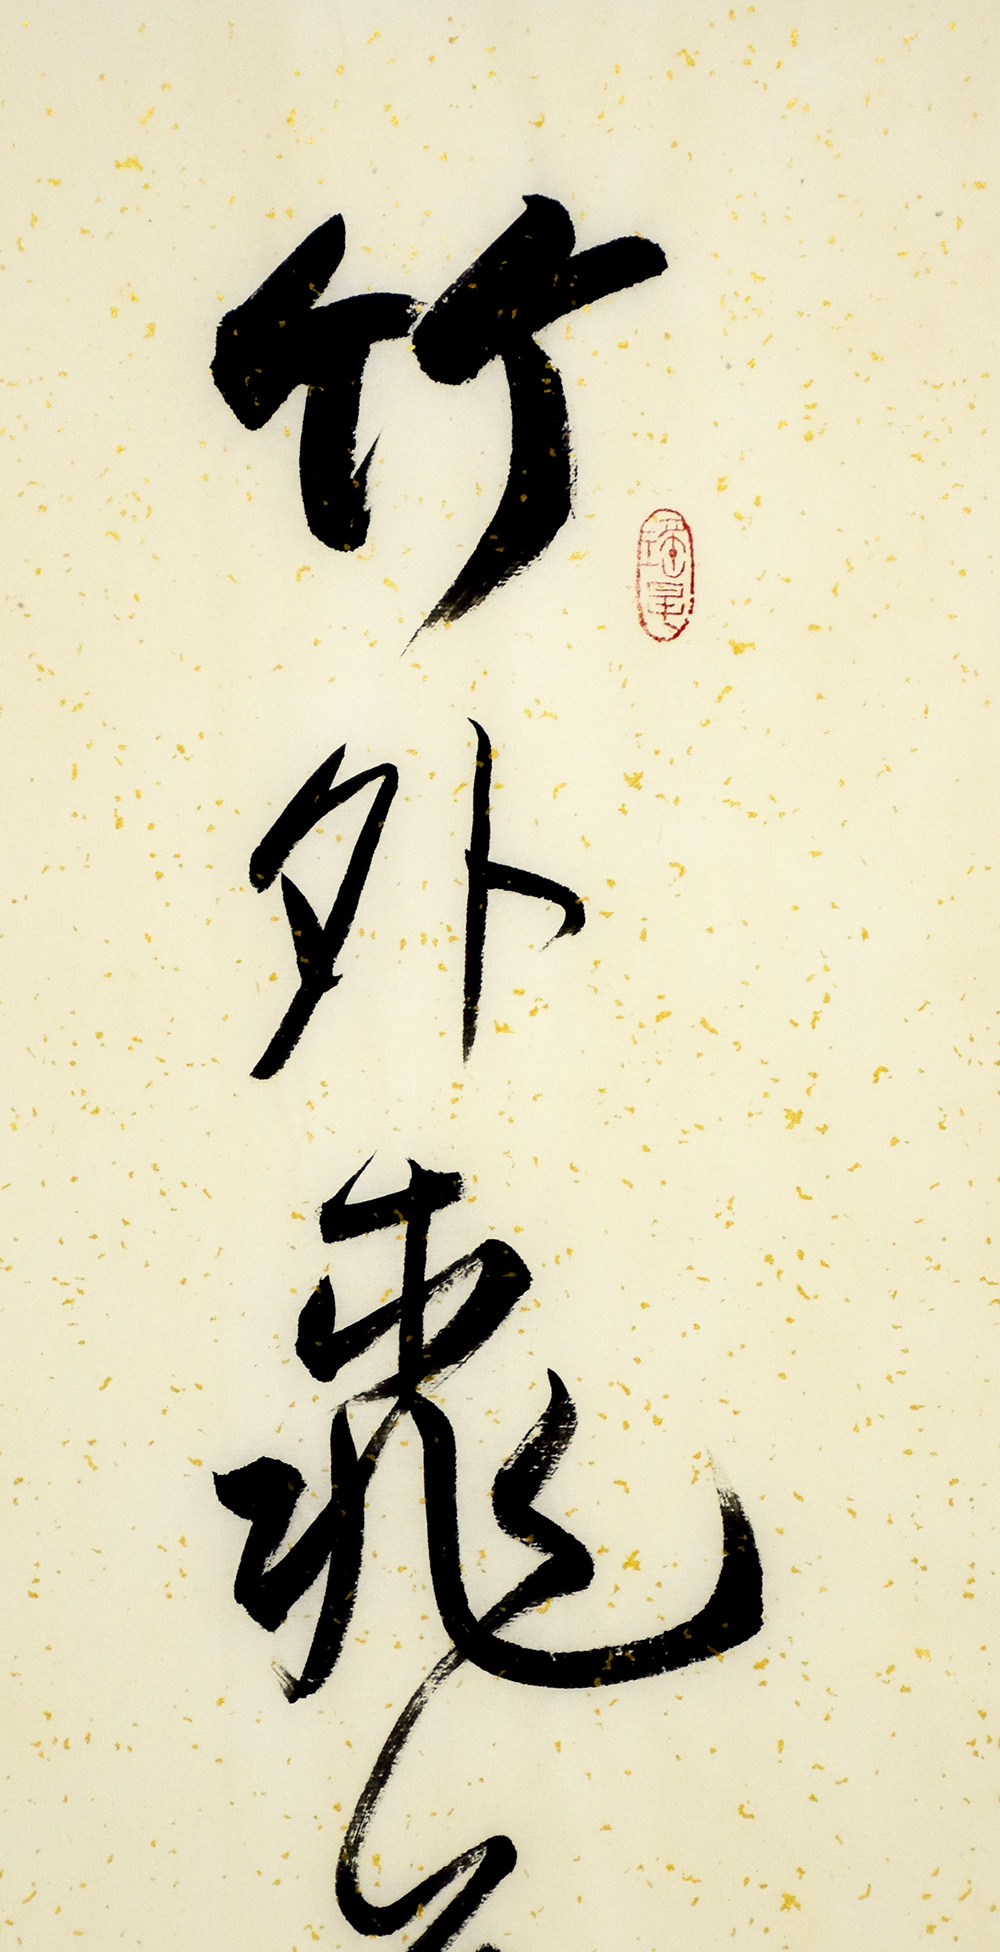 竹外桃